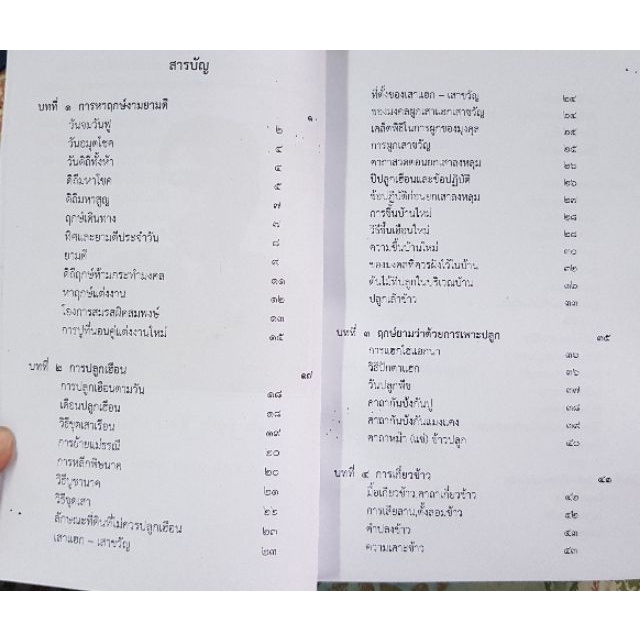 สารบัญ
บทที่ ๑ การหาฤกษ์งามยามดี ๑
วันจมวันฟู ๒
วันอมุตโชค ๔
วันดิถีทั้งห้า ๔
ดิถีมหาโชค ๕
ดิถีมหาสูญ ๗
ฤกษ์เดินทาง ๗
ทิศและยามดีประจำวัน ๘
ยามดี ๙
ดิถีฤกษ์ห้ามกระทำมงคล ๑๑
หาฤกษ์แต่งงาน ๑๒
โฉลกการสมรสผิดสมพงษ์ ๑๓
การปูที่นอนคู่แต่งงานใหม่ ๑๕
บทที่ ๒ การปลูกเฮือน ๑๗
การปลูกเฮือนตามวัน ๑๘
เดือนปลูกเฮือน ๑๘
วิธีขุดเสาเรือน ๑๙
การย้ายแม่ธรณี ๒๐
การหลีกพิษนาค ๒๐
วิธีบูชานาค ๒๑
วิธีขุดเสา ๒๒
ลักษณะที่ดินที่ไม่ควรปลูกเฮือน ๒๓
เสาแฮก – เสาขวัญ ๒๓
ที่ตั้งของเสาแฮก – เสาขวัญ ๒๔
ของมงคลผูกเสาแฮกเสาขวัญ ๒๔
เคล็ดพิธีในการผูกของมงคล ๒๕
การผูกเสาขวัญ ๒๕
คาถาสวดตอนยกเสาลงหลุม ๒๖
ปีปลูกเฮือนและข้อปฏิบัติ ๒๖
ข้อปฏิบัติก่อนยกเสาลงหลุม ๒๗
การขึ้นบ้านใหม่ ๒๘
วิธีขึ้นเฮือนใหม่ ๒๘
ความขึ้นบ้านใหม่ ๓๐
ของมงคลที่ควรฝังไว้ในบ้าน ๓๒
ต้นไม้ที่ปลูกในบริเวณบ้าน
ปลูกเล้าข้าว ๓๓
บทที่ ๓ ฤกษ์ยามว่าด้วยการเพาะปลูก ๓๕
การแฮกไฮแฮกนา ๓๖
วิธีปักตาแฮก ๓๖
วันปลูกพืช ๓๗
คาถากันบ้งกันปู ๓๘
คาถากันบ้งกันแมงแคง ๓๙
คาถาหม่า (แช่) ข้าวปลูก ๔๐
บทที่ ๔ การเกี่ยวข้าว ๔๑
มื้อเกี่ยวข้าว,คาถาเกี่ยวข้าว ๔๑
การเสียลาน,ตั้งลอมข้าว ๔๒
คำปลงข้าว ๔๓
ความเคาะข้าว ๔๓